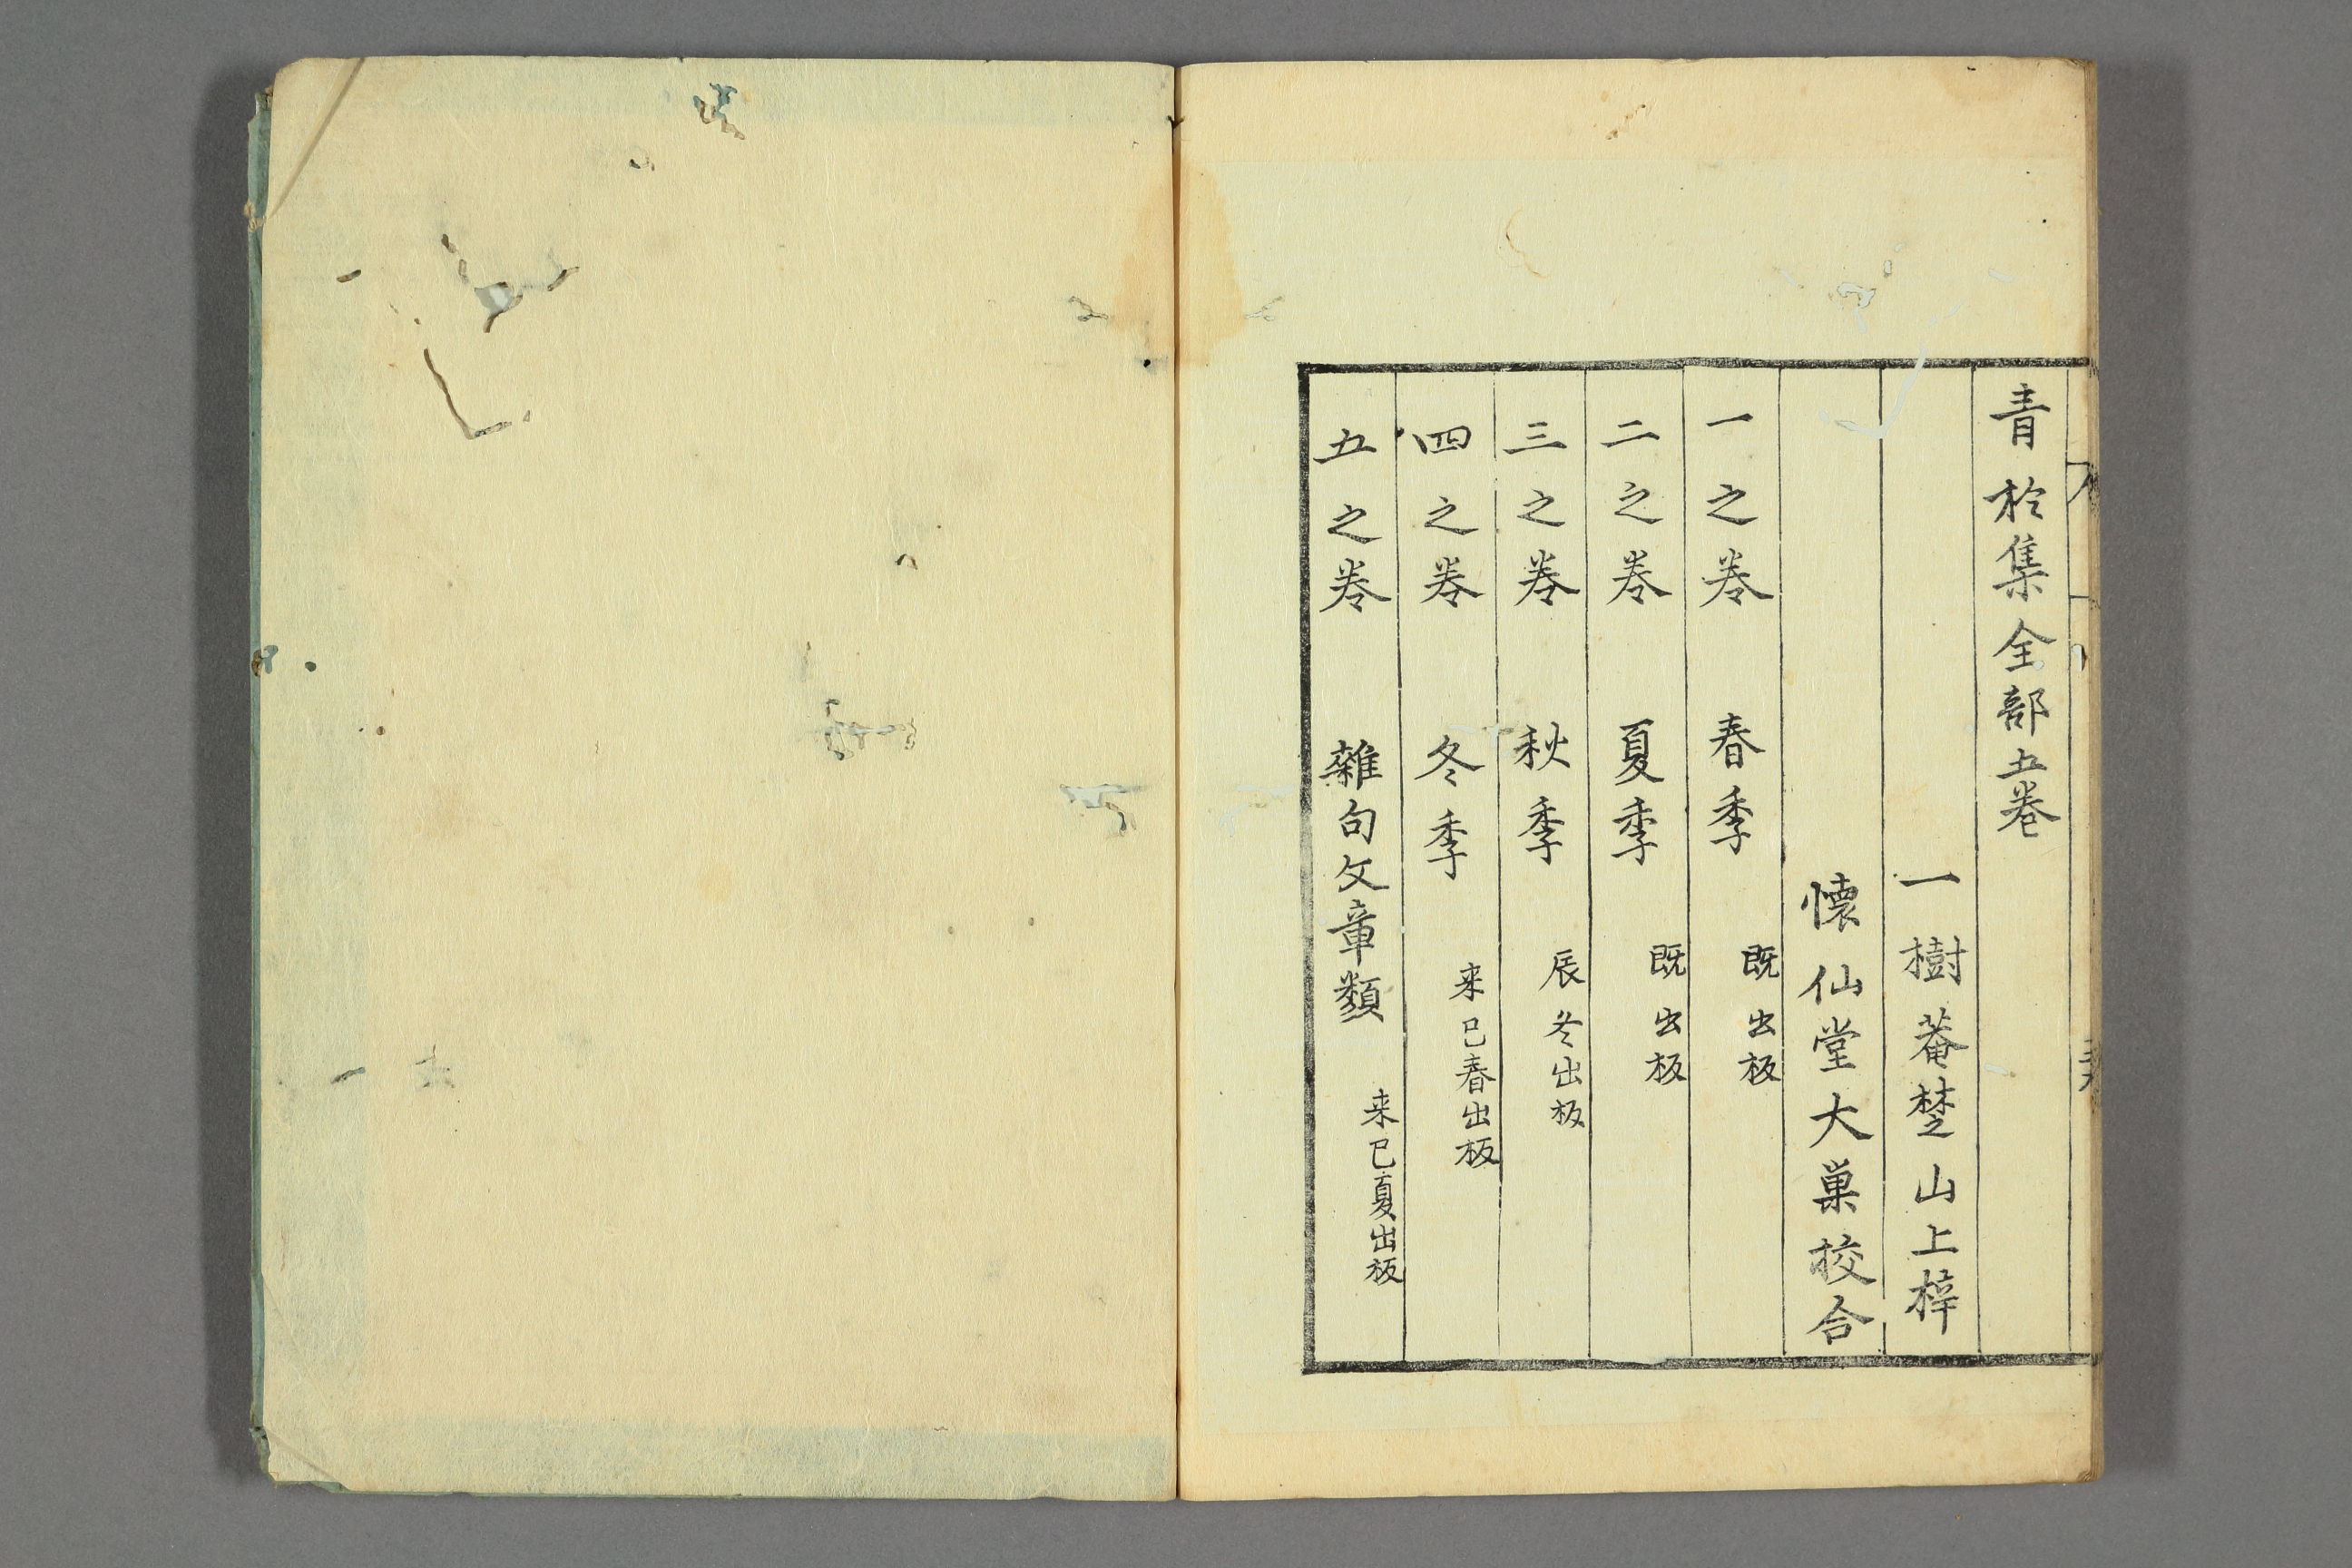 青於集全部五巻
一樹菴梺山上梓
懐仙堂大巣校合
一之巻 春季 既出板
二之巻 夏季 既出板
三之巻 秋季 辰冬出板
四之巻 冬季 来巳春出板
五之巻 雑句文章類 来巳夏出板